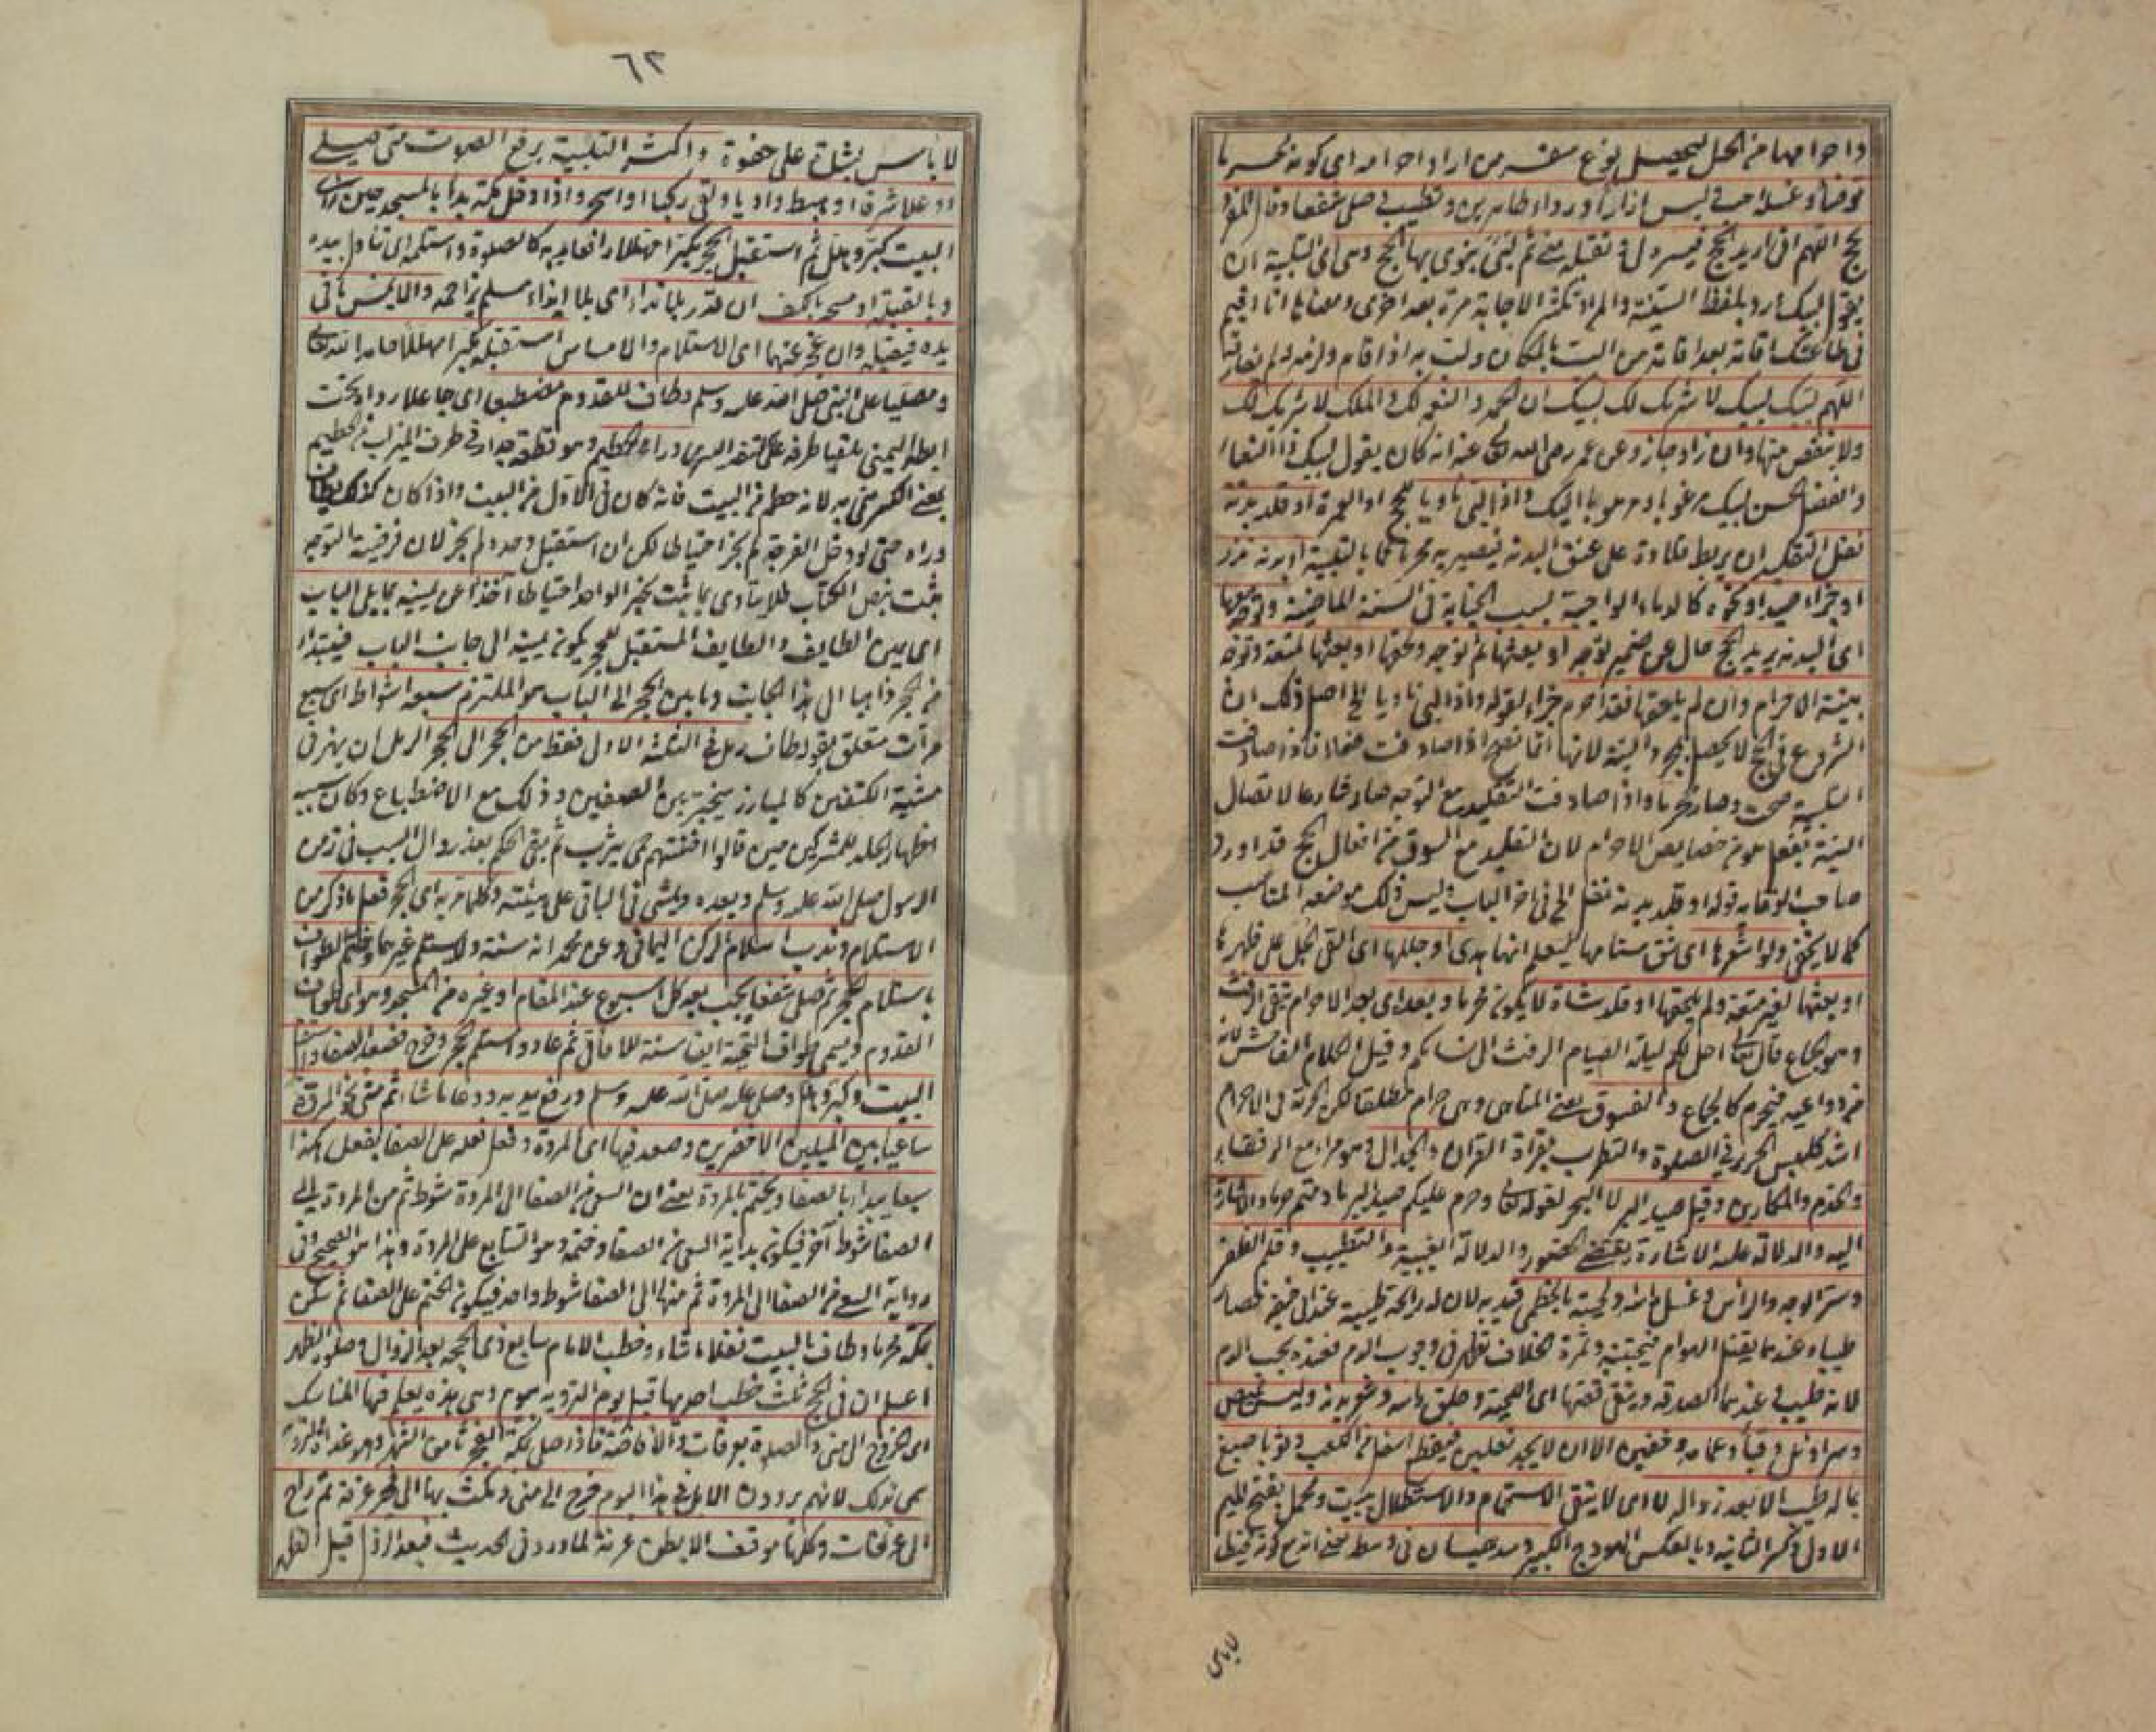 واحرامها من الحل ليحصل نوع سفر من اراد احرامه اى كونه محرما
توضأ وغسله احب ولبس ازارا ورداء طاهرين وتطيب وصلى شفعا وقال المفرد
بحج اللهم انى اريد الحج فيسره لى وتقبله منى ثم لبى ينوى بها الحج وهى اى التلبية ان
يقول لبيك ورد بلفظ التثنية والمراد تكثير الاجابة مرة بعد اخرى ومعناها انا اقيم
فى طاعتك اقامة بعد اقامة من الب بالمكان ولب به اذا اقام ولزمه ولم يفارقه
اللهم لبيك لبيك لا شريك لك لبيك ان الحمد والنعمة لك والملك لا شريك لك
ولا ينقص منها وان زاد جاز وعن عمر رضى الله تعالى عنه انه كان يقول لبيك ذا النعماء
والفضل الحسن لبيك مرغوبا ومرهوبا اليك واذا لبى ناويا للحج او العمرة او قلد بدنة
نفل التقليد ان يربط قلادة على عنق البدنة فيصير به محرما كما بالتلبية او بدنة نذر
او جزاء صيد او نحوه كالدماء الواجبة بسبب الجناية فى السنة الماضية وتوجه معها
اى البدنة يريد الحج حال عن ضمير توجه او بعثها ثم توجه ولحقها او بعثها لمتعة وتوجه
بنية الاحرام وان لم يلحقها فقد احرم جزاء لقوله واذا لبى ناويا الخ اصل ذلك ان
الشروع فى الحج لا يحصل بمجرد النية لانها انما تصح اذا صادفت فعلا فاذا صادفت
التلبية صحت وصار محرما واذا صادفت التقليد مع التوجه صار شارعا لاتصال
النية بفعل هو من خصايص الاحرام لان التقليد مع السوق من افعال الحج قد اورد
صاحب الوقاية قوله او قلد بدنة نفل الخ فى اخر الباب وليس ذلك موضعه المناسب
كما لا يخفى ولو اشعرها اى شق سنامها ليعلم انها هدى او جللها اى القى الجل على ظهرها
او بعثها لغير متعة ولم يلحقها او قلد شاة لا يكون محرما وبعده اى بعد الاحرام يتقى الرفث
وهو الجماع قال تعالى احل لكم ليلة الصيام الرفث الى نسائكم وقيل الكلام الفاحش لانه
من دواعيه فيحرم كالجماع والفسوق يعنى المعاصى وهى حرام مطلقا لكن الحرمة فى الاحرام
اشد كلبس الحرير فى الصلوة والتطرب بقراءة القرآن والجدال وهو مراء مع الرفقاء
والخدم والمكارين وقتل صيد البر لا البحر لقوله تعالى وحرم عليكم صيد البر ما دمتم حرما والاشارة
اليه والدلالة عليه الاشارة يقتضى الحضور والدلالة الغيبة والتطيب وقلم الظفر
وستر الوجه والرأس وغسل رأسه ولحيته بالخطمى قيد به لان له رائحة طيبة عند ابى حنيفة فصار
طيبا وعندهما يقتل الهوام فيجتنبه وثمرة الخلاف تظهر فى وجوب الدم فعنده يجب الدم
لانه طيب وعندهما الصدقة ويتقى قصها اى اللحية وحلق رأسه وشعر بدنه ولبس قميص
وسراويل وقباء وعمامة وخفين الا ان لا يجد نعلين فيقطع اسفل من الكعب وثوبا صبغ
بما له طيب الا بعد زواله لا اى لا يتقى الاستحمام والاستظلال ببيت ومحمل بفتح الميم
الاول وكسر الثانية وبالعكس الهودج الكبير وشد هميان فى وسطه يعنى انه مع كونه مخيطا
لا بأس
٦٢
لا باس بشدة على حقوه واكثر التلبية برفع الصوت متى صلى
او علا شرفا او هبط واديا او لقى ركبا او اسحر واذا دخل مكة بدأ بالمسجد حين رأى
البيت كبر وهلل ثم استقبل الحجر مكبرا مهللا رافعا يديه كالصلوة واستلمه اى تناوله بيده
وبالقبلة او مسحه بالكف ان قدر بلا ايذاء اى بلا ايذاء مسلم يزاحمه والا يمس ما فى
يده فيقبله وان عجز عنهما اى الاستلام والامساس استقبله مكبرا مهللا حامدا لله تعالى
ومصليا على النبى صلى الله عليه وسلم وطاف للقدوم مضطبعا اى جاعلا رداءه تحت
ابطه اليمنى ملقيا طرفه على كتفه اليسرى وراء الحطيم وهو قطعة جدار فى طرف الميزاب من الحطيم
بمعنى الكسر سمى به لانه حطم من البيت فانه كان فى الاول من البيت واذا كان كذلك يطاف
وراءه حتى لو دخل الفرجة لم يجز احتياطا لكن ان استقبل وحده لم يجز لان فرضية التوجه
ثبت بنص الكتاب فلا يتأدى بما ثبت بخبر الواحد احتياطا آخذا عن يمينه مما يلى الباب
اى يمين الطايف والطايف المستقبل للحجر يكون يمينه الى جانب الباب فيبتدأ
من الحجر ذاهبا الى هذا الجانب وما بين الحجر الى الباب هو الملتزم سبعة اشواط اى سبع
مرات متعلق بقوله طاف رمل فى الثلثة الاول فقط من الحجر الى الحجر الرمل ان يهز فى
مشيته الكتفين كالمبارز يتبختر بين الصفين وذلك مع الاضطباع وكان سببه
اظهار الجلد للمشركين حين قالوا اضنتهم حمى يثرب ثم بقى الحكم بعد زوال السبب فى زمن
الرسول صلى الله عليه وسلم وبعده ويمشى فى الباقى على هينته وكلما مر به اى الحجر فعل ما ذكر من
الاستلام وندب استلام الركن اليمانى وعن محمد انه سنة ولا يستلم غيرهما وختم الطواف
باستلام الحجر ثم صلى شفعا يجب بعد كل اسبوع عند المقام او غيره من المسجد وهو اى طواف
القدوم ويسمى طواف التحية ايضا سنة للآفاقى ثم عاد واستلم الحجر وخرج فصعد الصفا واستقبل
البيت وكبر وهلل وصلى عليه صلى الله عليه وسلم ورفع يديه ودعا ما شاء ثم مشى نحو المروة
ساعيا بين الميلين الاخضرين وصعد فيها اى المروة وفعل فعله على الصفا يفعل هكذا
سبعا يبدأ بالصفا ويختم بالمروة يعنى ان السعى من الصفا الى المروة شوط ثم من المروة الى
الصفا شوط آخر فيكون بداية السعى من الصفا وختمه وهو السابع على المروة وهذا هو الصحيح وفى
رواية السعى من الصفا الى المروة ثم منها الى الصفا شوط واحد فيكون الختم على الصفا ثم سكن
بمكة محرما وطاف بالبيت نفلا ما شاء وخطب الامام سابع ذى الحجة بعد الزوال وصلوة الظهر
اعلم ان فى الحج ثلث خطب احديها قبل يوم التروية بيوم وهى هذه يعلم فيها المناسك
اى الخروج الى منى والصلوة بعرفات والافاضة فاذا صلى بمكة الفجر ثامن الشهر وهو غداة التروية
سمى بذلك لانهم يروون الابل فى هذا اليوم خرج الى منى ومكث بها الى فجر عرفة ثم راح
الى عرفات وكلها موقف الا بطن عرنة لما ورد فى الحديث فبعد الزوال قبل الظهر